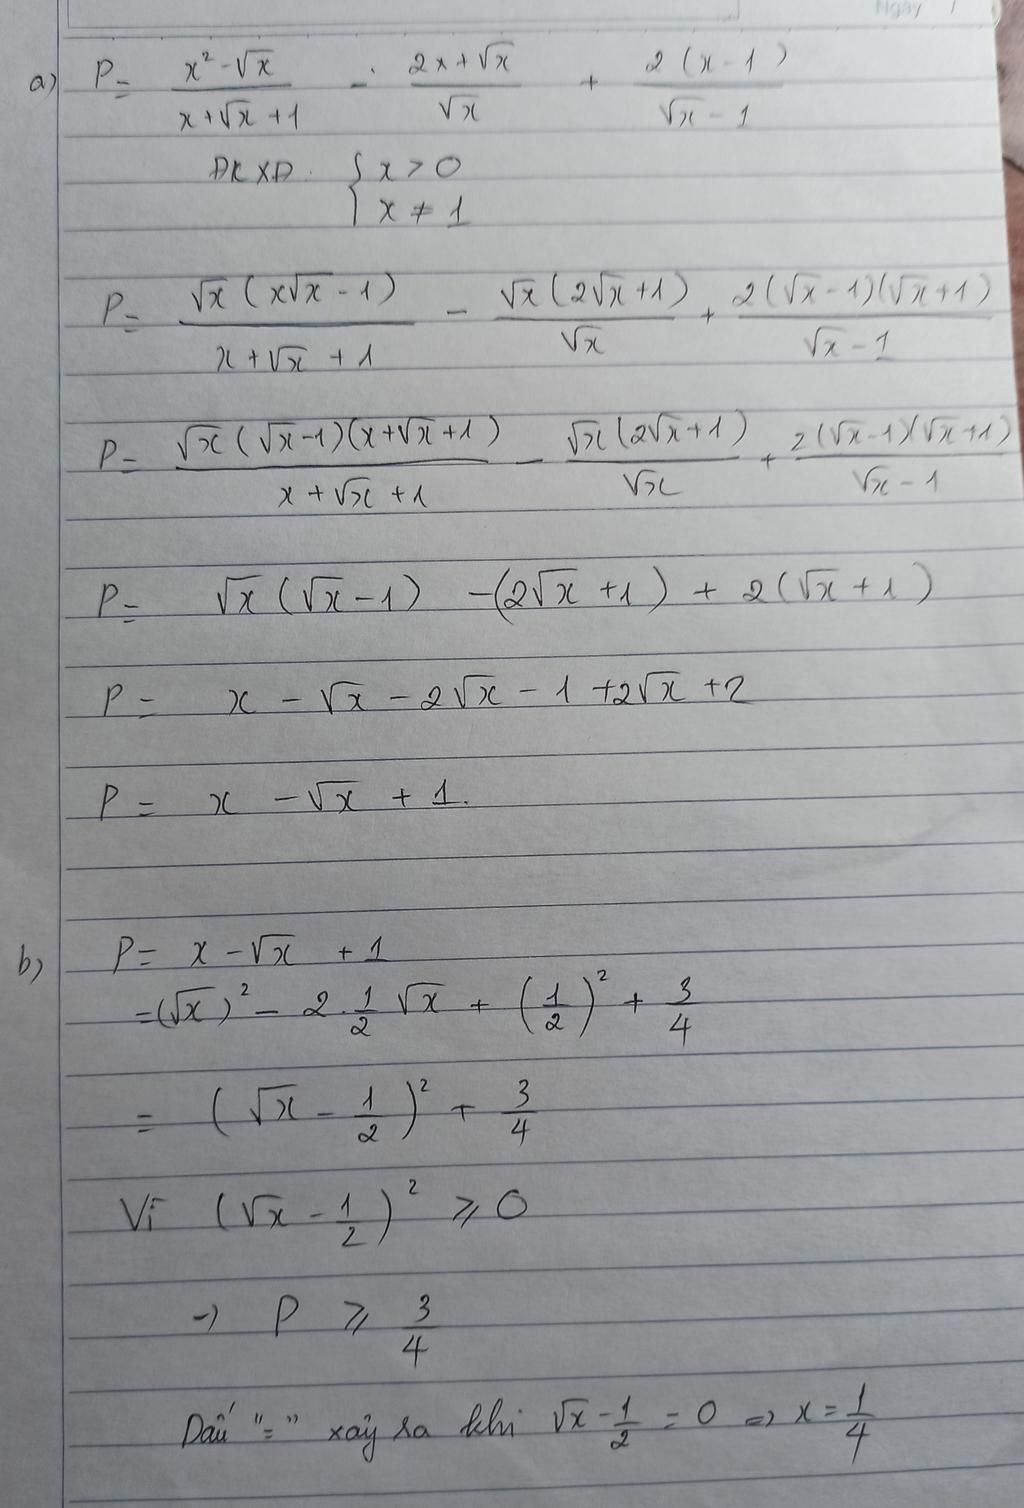 Ngày /
a) P = (x² - √x)/(x + √x + 1) - (2x + √x)/√x + 2(x - 1)/(√x - 1)
ĐKXĐ. { x > 0
x ≠ 1
P = √x(x√x - 1)/(x + √x + 1) - √x(2√x + 1)/√x + 2(√x - 1)(√x + 1)/(√x - 1)
P = √x(√x - 1)(x + √x + 1)/(x + √x + 1) - √x(2√x + 1)/√x + 2(√x - 1)(√x + 1)/(√x - 1)
P = √x(√x - 1) - (2√x + 1) + 2(√x + 1)
P = x - √x - 2√x - 1 + 2√x + 2
P = x - √x + 1.
b) P = x - √x + 1
= (√x)² - 2.1/2 √x + (1/2)² + 3/4
= (√x - 1/2)² + 3/4
Vì (√x - 1/2)² ⩾ 0
→ P ⩾ 3/4
Dấu "=" xảy ra khi √x - 1/2 = 0 => x = 1/4